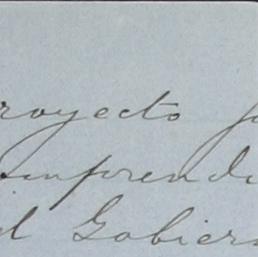 royecto
emprendi
il Gobiern